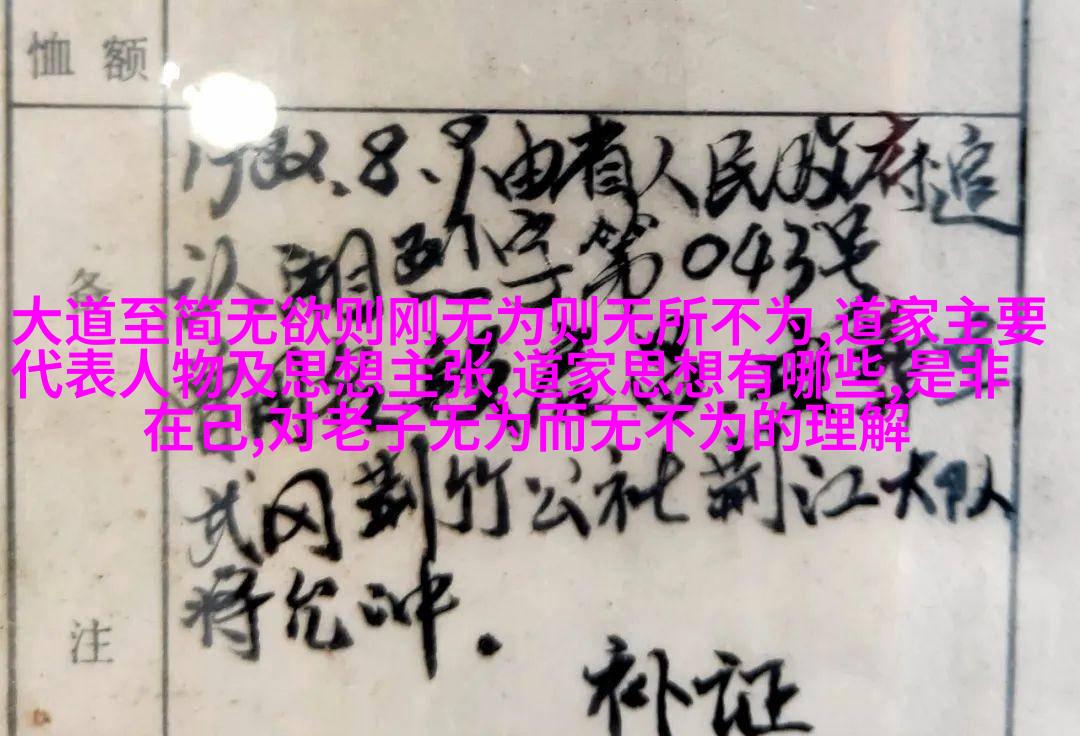 恤额
1982.8.9由省人民政府追
认湘烈字第043号
备
大道至简无欲则刚无为则无所不为,道家主要
代表人物及思想主张,道家思想有哪些,是非
在己,对老子无为而无不为的理解
武冈荆竹公社荆江大队
蒋允冲.
注
补证